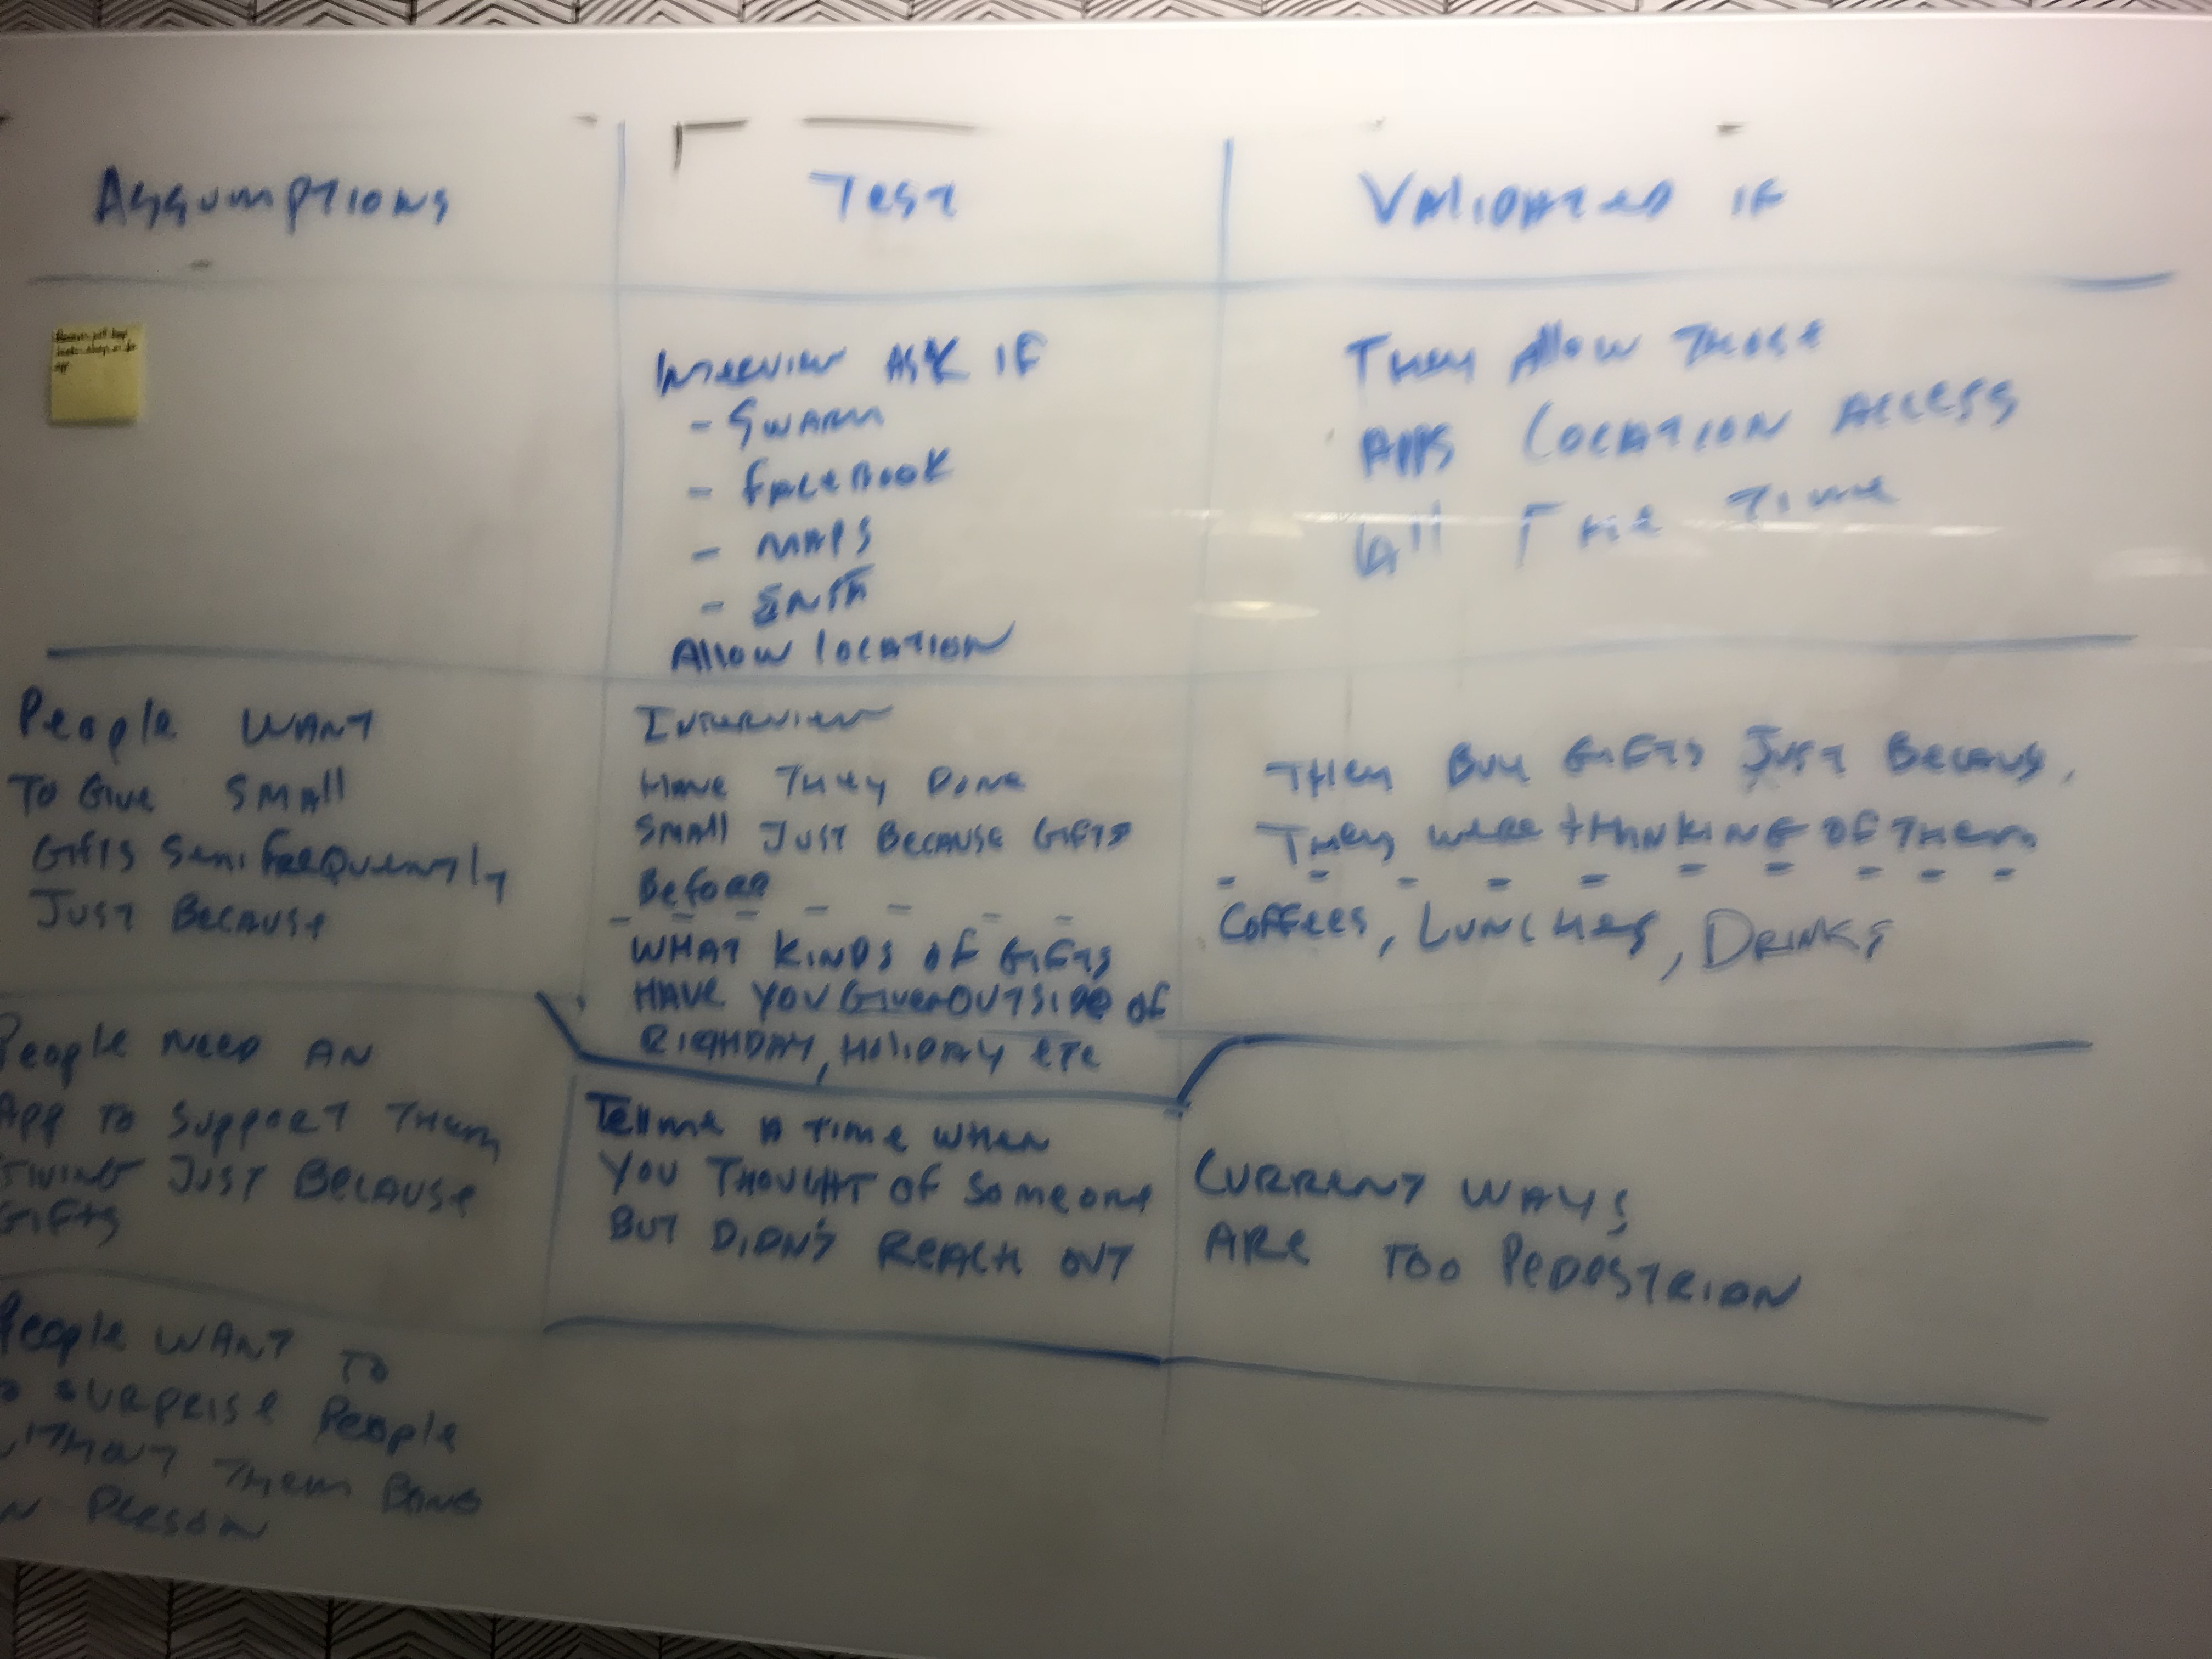 Assumptions
Test
Validated if
Interview ask if
- Swarm
- Facebook
- Maps
-
Allow location
They allow those
apps location access
all the time
People want
to give small
gifts semi frequently
just because
Interview
Have they done
small just because gifts
before
What kinds of gifts
have you given outside of
birthday, holiday etc
They buy gifts just becaus,
they were thinking of them
Coffees, Lunches, Drinks
People need an
app to support them
just because
gifts
Tell me a time when
you thought of someone
but didn't reach out
Current ways
are too pedestrian
People want to
surprise people
them being
person